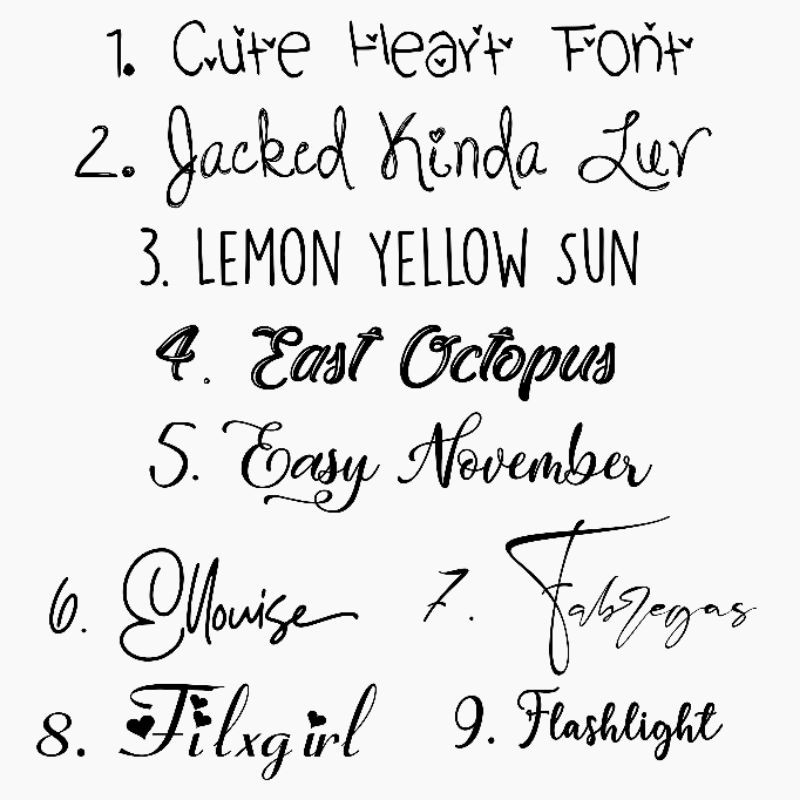 1. Cute Heart Font
2. Jacked Kinda Luv
3. LEMON YELLOW SUN
4. East Octopus
5. Easy November
6. Ellouise
7. Fabregas
8. Filxgirl
9. Flashlight